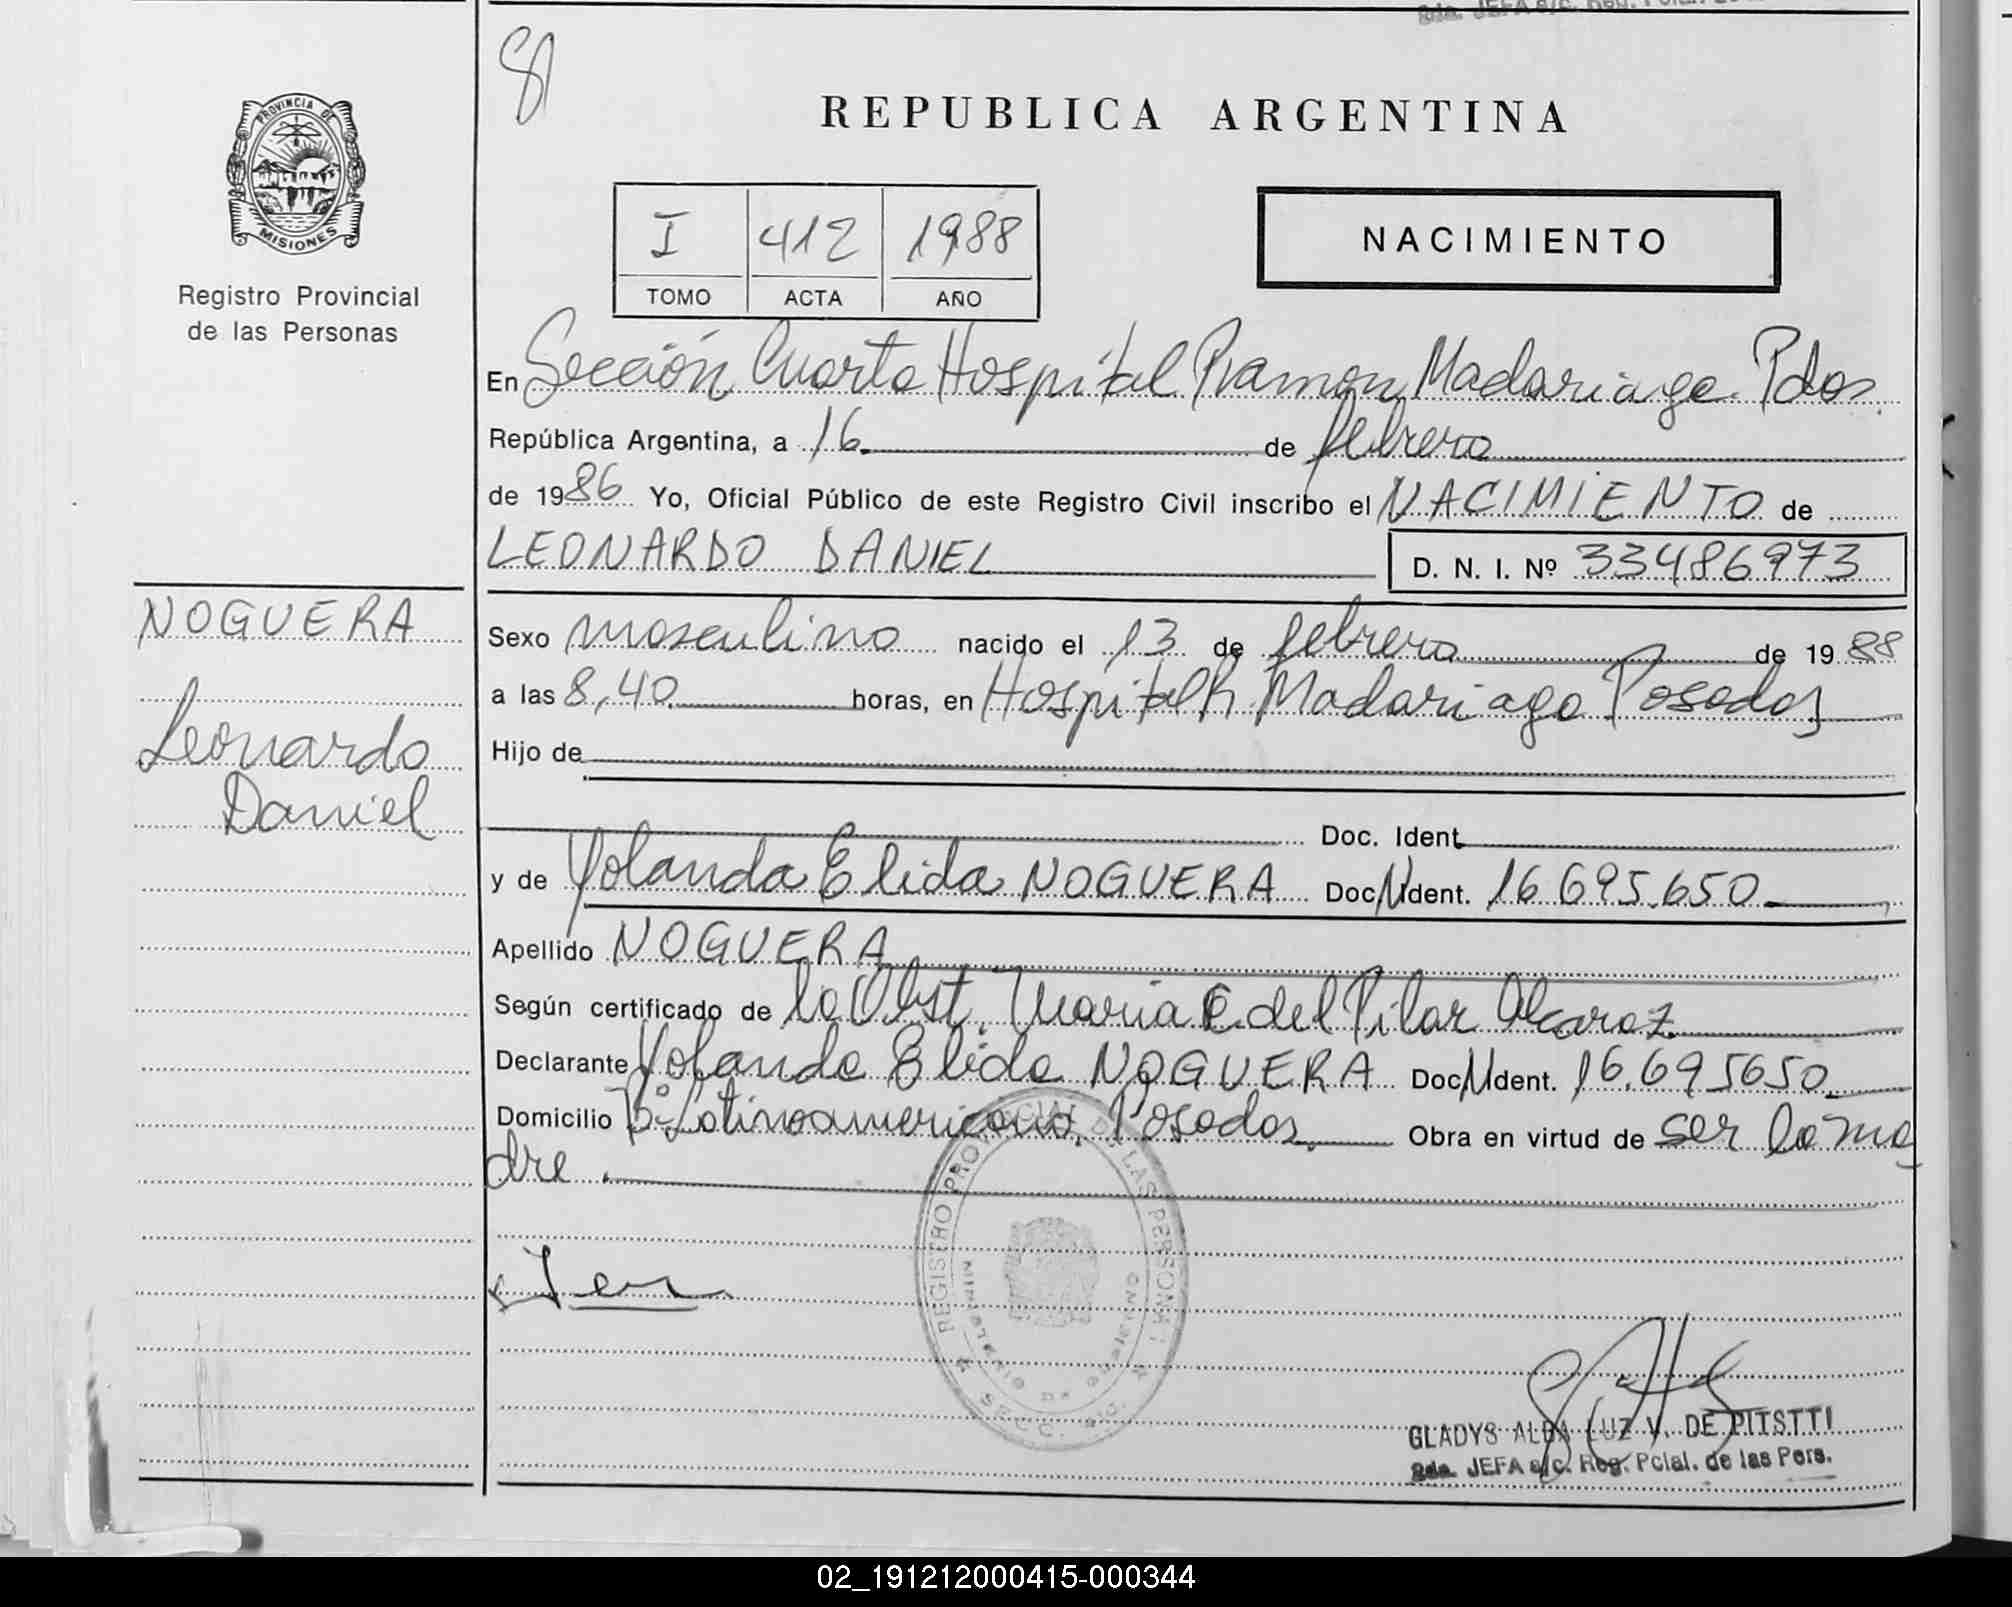 8da. JEFA a/c. Reg. Pcial.
81
PROVINCIA DE
MISIONES
Registro Provincial
de las Personas
REPUBLICA ARGENTINA
I 412 1988
TOMO ACTA AÑO
NACIMIENTO
En Sección Cuarta Hospital Ramon Madariaga Pdas.
República Argentina, a 16 de febrero
de 1986 Yo, Oficial Público de este Registro Civil inscribo el NACIMIENTO de
LEONARDO DANIEL D. N. I. Nº 33486973
NOGUERA
Leonardo
Daniel
Sexo masculino nacido el 13 de febrero de 1988
a las 8,40 horas, en Hospital R. Madariaga Posadas
Hijo de
Doc. Ident.
y de Yolanda Elida NOGUERA Doc. Ident. 16.695.650
Apellido NOGUERA
Según certificado de la Obst. Maria C. del Pilar Alcaraz
Declarante Yolanda Elida NOGUERA Doc. Ident. 16.695650
Domicilio Bº Latinoamericano, Posadas. Obra en virtud de ser la ma
dre.
REGISTRO PROVINCIAL DE LAS PERSONAS
MINISTERIO DE GOBIERNO
SECC. 4ta.
GLADYS ALBA LUZ V. DE PITSTTI
2da. JEFA a/c. Reg. Pcial. de las Pers.
02_191212000415-000344